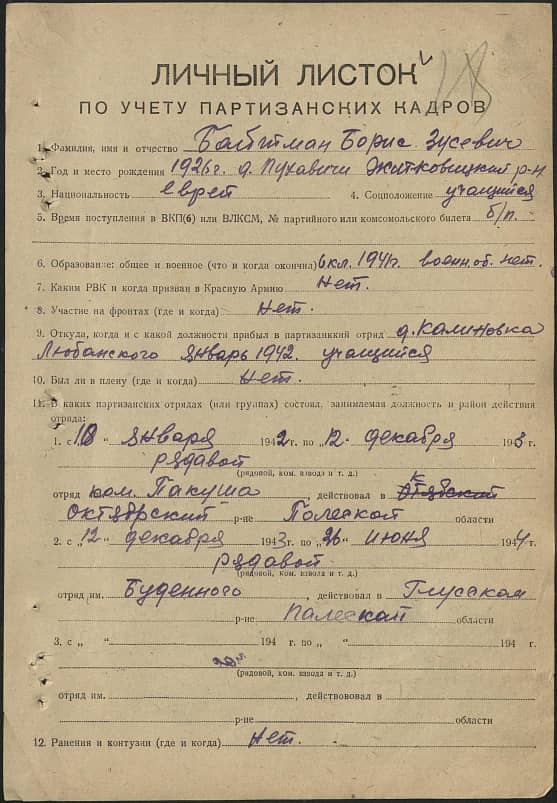 ЛИЧНЫЙ ЛИСТОК
ПО УЧЕТУ ПАРТИЗАНСКИХ КАДРОВ
1. Фамилия, имя и отчество Борис Зусевич
2. Год и место рождения 1926 г. д. Пухавичи Житковицкий р-н
3. Национальность еврей 4. Соцположение учащийся
5. Время поступления в ВКП(б) или ВЛКСМ, № партийного или комсомольского билета б/п.
6. Образование: общее и военное (что и когда окончил) 6 кл. 1941 г. военн. об. нет.
7. Каким РВК и когда призван в Красную Армию Нет.
8. Участие на фронтах (где и когда) Нет.
9. Откуда, когда и с какой должности прибыл в партизанккий отряд д. Калиновка
Любанского январь 1942. учащийся
10. Был ли в плену (где и когда) Нет.
11. В каких партизанских отрядах (или группах) состоял, занимаемая должность и район действия
отряда:
1. с „18 января 1942 г. по „12 декабря 1943 г.
рядавой
(рядовой, ком. взвода и т. д.)
отряд ком. Пакуша, действовал в
Октябрский р-не Полеской области
2. с „12" декабря 1943 г. по „26 июня 1944 г.
рядавой
(рядовой, ком. взвода и т. д.)
отряд им. Буденного, действовал в Глускам
р-не Палеской области
3. с „ " 194 г. по „ " 194 г.
(рядовой, ком. взвода и т. д.)
отряд им., действововал в
р-не области
12. Ранения и контузии (где и когда) Нет.